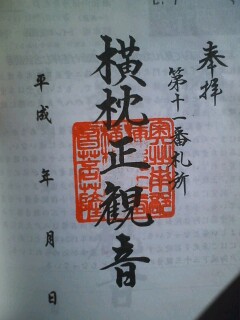 奉拝
第十一番札所
横枕正観音
平成　年　月　日